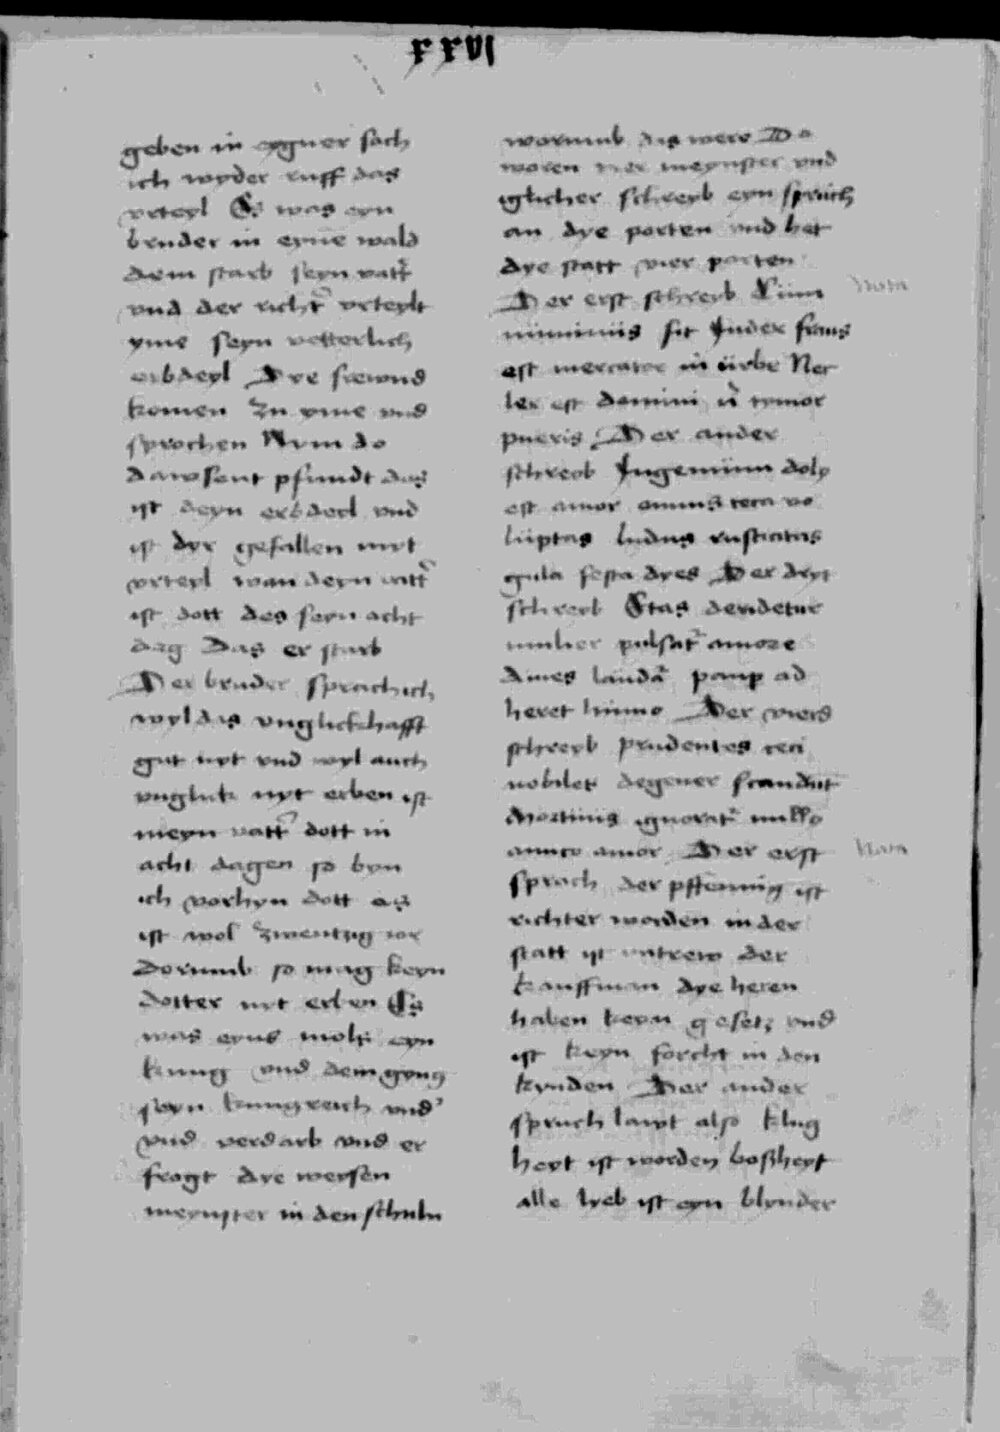 xxvi
geben in eygner sach
ich wyder ruff das
vrteyl Es was eyn
bruder in eyne wald
dem starb seyn vatt̉
vnd der richt̉ vrteylt
yme seyn vetterlich
erbdeyl Dye frewnd
komen zu yme vnd
sprochen Nym do
dawsent pfundt das
ist deyn erbdeil vnd
ist dyr gefallen mit
vrteyl wan deyn vatt̉
ist dott des seyn acht
dag Das er starb
Der bruder sprach ich
wyl das vnglickhafft
gut nyt vnd wyl auch
vngluck nyt erben ist
meyn vatt̉ dott in
acht dagen so byn
ich vorhyn dott es
ist wol zwentzig ior
dorumb so mag keyn
dotter nyt erben Es
was eyns mols eyn
kung vnd dem gyng
seyn kungreich vnd̉
vnd verdarb vnd er
frogt dye weysen
meynster in den schuln
worumb das were Do
woren vier meynster vnd
iglicher schreyb eyn spruch
an dye porten vnd het
dye statt vier porten
Der erst schreyb Cum
Nota
nummus sit Judex fraus
est mercator in urbe Nec
lex est domini n̄ tymor
pueris Der ander
schreyb Ingenium dolꝰ
est amor omnis ceca vo
luptas ludus rusticitas
gula festa dyes Der dryt
schreyb Etas deridetur
mulier pulsat̉ amore
diues laudat̉ paup ad
heret humo Der vierd
schreyb prudentes ceci
nobiles degener scandunt
Mortuus ignorat̉ nullꝰ
amico amor Der erst
Nota
sprach der pffennig ist
richter worden in der
statt ist vntrew der
kauffman dye heren
haben keyn gesetz vnd
ist keyn forcht in den
kynden Der ander
spruch lawt also klug
heyt ist worden boßheyt
alle lyeb ist eyn blynder